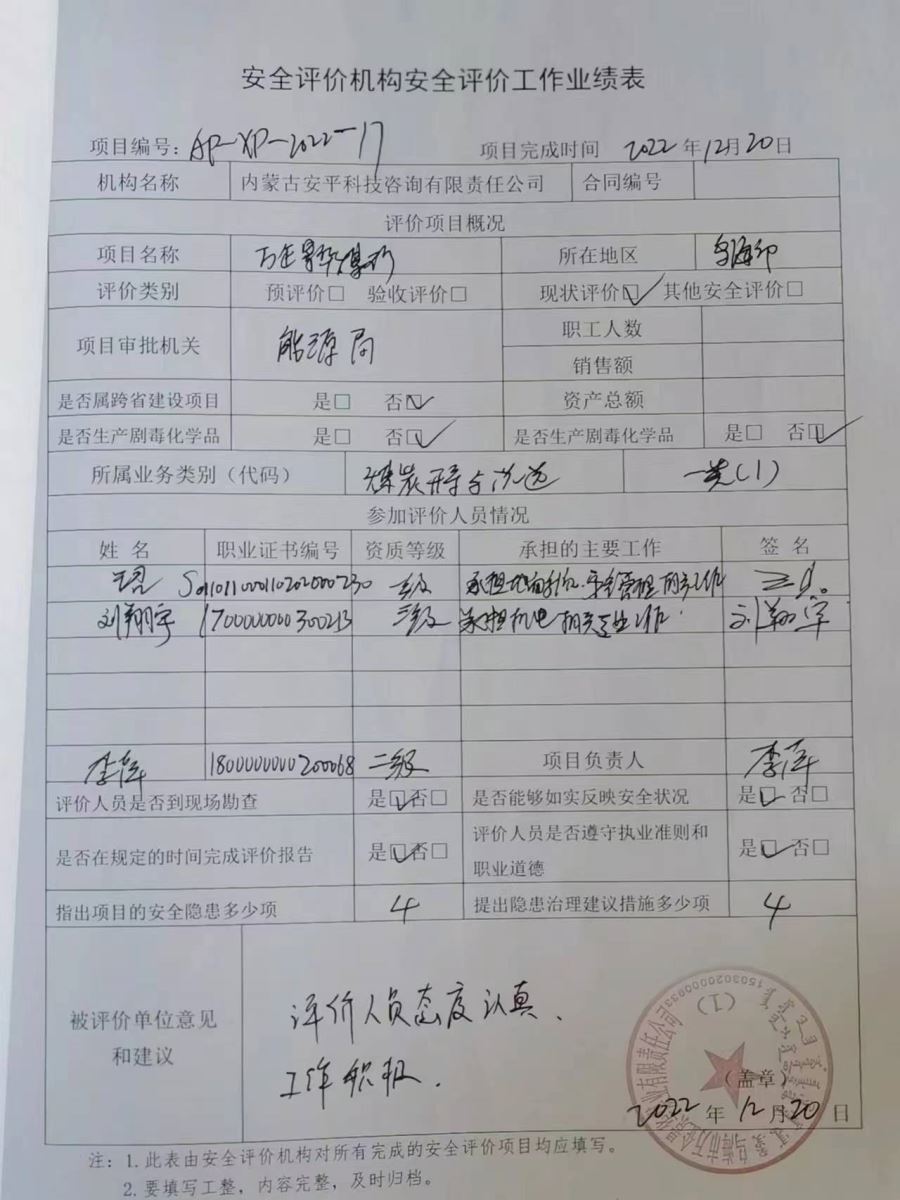 安全评价机构安全评价工作业绩表
项目编号: AP-XP-2022-17 项目完成时间 2022年12月20日
机构名称 内蒙古安平科技咨询有限责任公司 合同编号
评价项目概况
项目名称 万企景华煤矿 所在地区 乌海市
评价类别 预评价□ 验收评价□ 现状评价☑ 其他安全评价□
项目审批机关 能源局 职工人数
销售额
是否属跨省建设项目 是□ 否☑ 资产总额
是否生产剧毒化学品 是□ 否☑ 是否生产剧毒化学品 是□ 否☑
所属业务类别（代码） 煤炭开采与洗选 一类(1)
参加评价人员情况
姓 名 职业证书编号 资质等级 承担的主要工作 签 名
S011011000110202000230
刘翔宇 1700000000300213 三级 承担机电相关专业工作. 刘翔宇
李萍 1800000000200068 二级 项目负责人 李萍
评价人员是否到现场勘查 是☑否□ 是否能够如实反映安全状况 是☑否□
是否在规定的时间完成评价报告 是☑否□ 评价人员是否遵守执业准则和
职业道德 是☑否□
指出项目的安全隐患多少项 4 提出隐患治理建议措施多少项 4
被评价单位意见
和建议
评价人员态度认真、
工作积极.
（盖章）
2022年12月20日
注：1.此表由安全评价机构对所有完成的安全评价项目均应填写。
2.要填写工整，内容完整，及时归档。